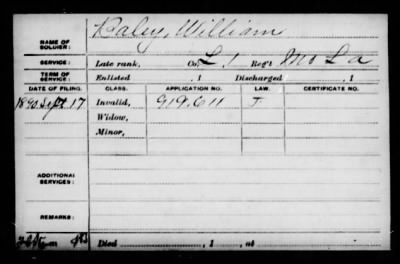 NAME OF SOLDIER: Raley, William
SERVICE: Late rank, Co. L. 1 Reg't Mo L a
TERM OF SERVICE: Enlisted , 1 Discharged , 1
DATE OF FILING. CLASS. APPLICATION NO. LAW. CERTIFICATE NO.
1890 Sept 17 Invalid, 919.611 J
Widow,
Minor,
ADDITIONAL SERVICES:
REMARKS:
Died , 1 , at